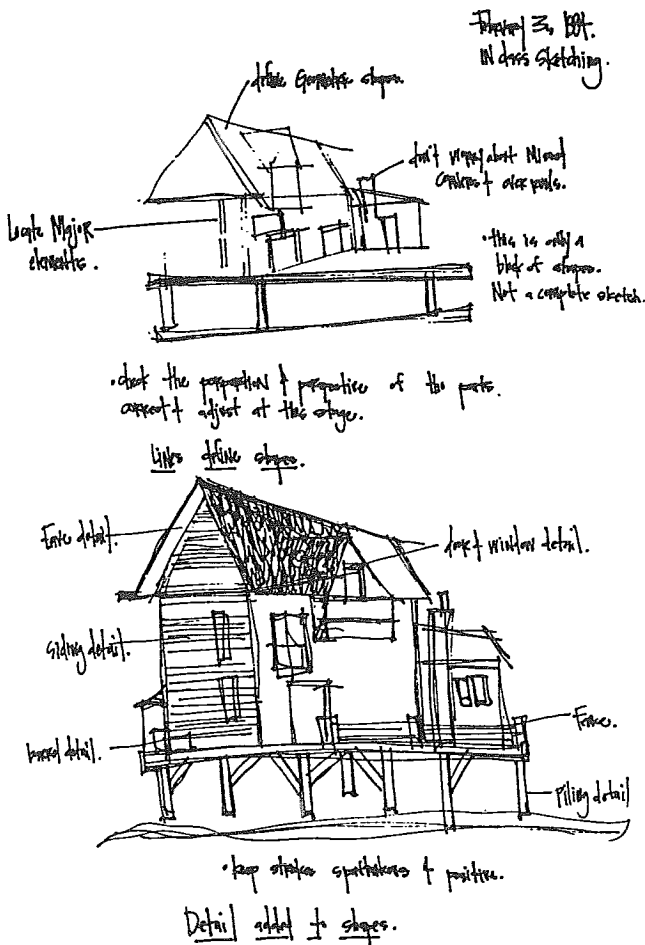 February 3, 1984.
IN class sketching.
define Geometric shapes.
don't worry about Mixed
corners & over
Locate Major
elements.
• this is only a
block of shapes.
Not a complete sketch.
• check the proportion & perspective of the parts.
correct & adjust at this stage.
LINES define shapes.
Eave detail.
door & window detail.
Siding detail.
barrel detail.
Fence.
Piling detail
• keep strokes spontaneous & positive.
Detail added to shapes.